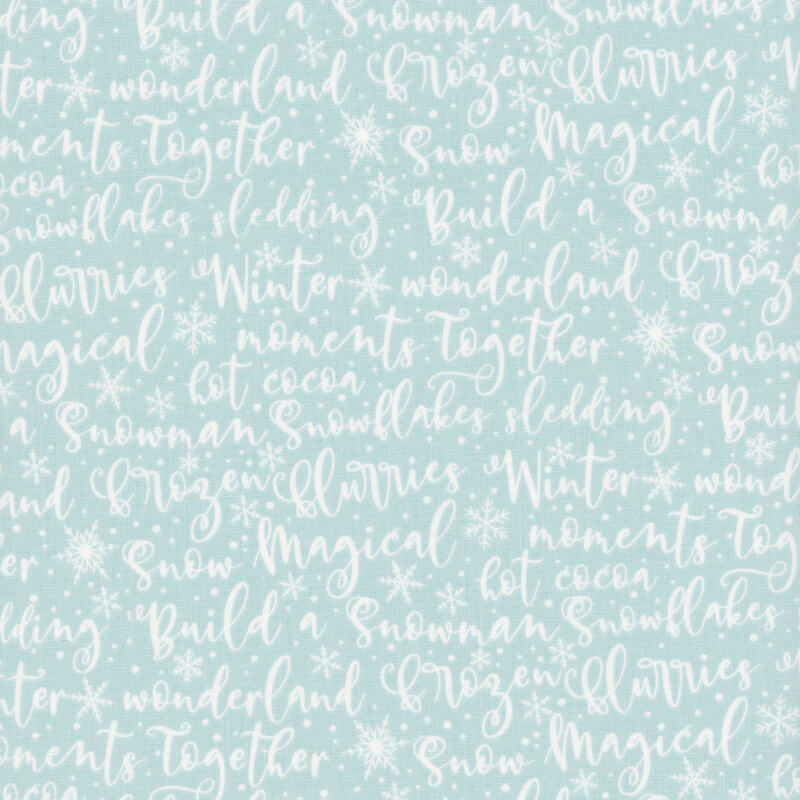 edding Build a Snowman Snowflakes
ter wonderland Frozen flurries W
moments Together Snow Magical
cocoa ho
Snowflakes sledding Build a Snowman
flurries Winter wonderland Frozen
Magical moments Together Snow
hot cocoa
a Snowman Snowflakes sledding Buil
and Frozen flurries Winter wond
er Snow Magical moments Tog
hot cocoa
dding Build a Snowman Snowflakes
nter wonderland Frozen flurries
oments Together Snow Magical